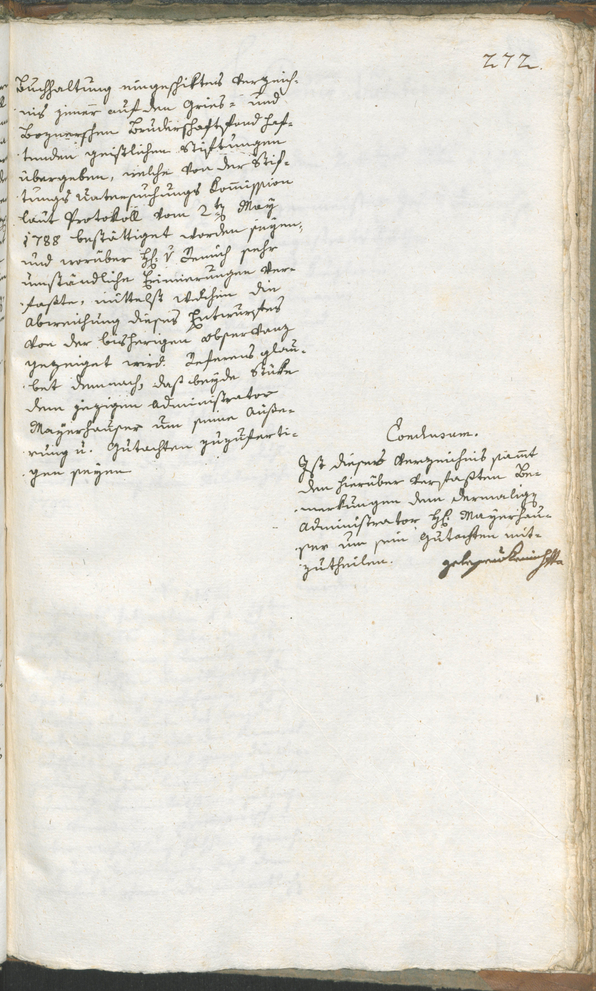 272.
Buchhaltung eingeschiktes Verzeich-
nis jener auf den Gries- und
Boznerischen Bruderschaftsfond haf-
tenden geistlichen Stiftungen
übergeben, welche von der Stif-
tungs Untersuchungs Kommission
laut Protokoll vom 2ten May
1788 bestättiget worden seyen,
und worüber H: v Remich sehr
umständliche Erinnerungen ver-
faßte, mittelst welchen die
Abweichung dieses Entwurfes
von der bisherigen observanz
gezeiget wird. Referens glau-
bet demnach, daß beyde Stüke
dem jezigen Administrator
Mayrhauser um seine Äuße-
rung u. Gutachten zuzuferti-
gen seyen
Conclusum.
Ist dieses Verzeichnis sammt
den hierüber verfaßten Be-
merkungen dem dermaligen
Administrator H: Mayrhau-
ser um sein Gutachten mit-
zutheilen.